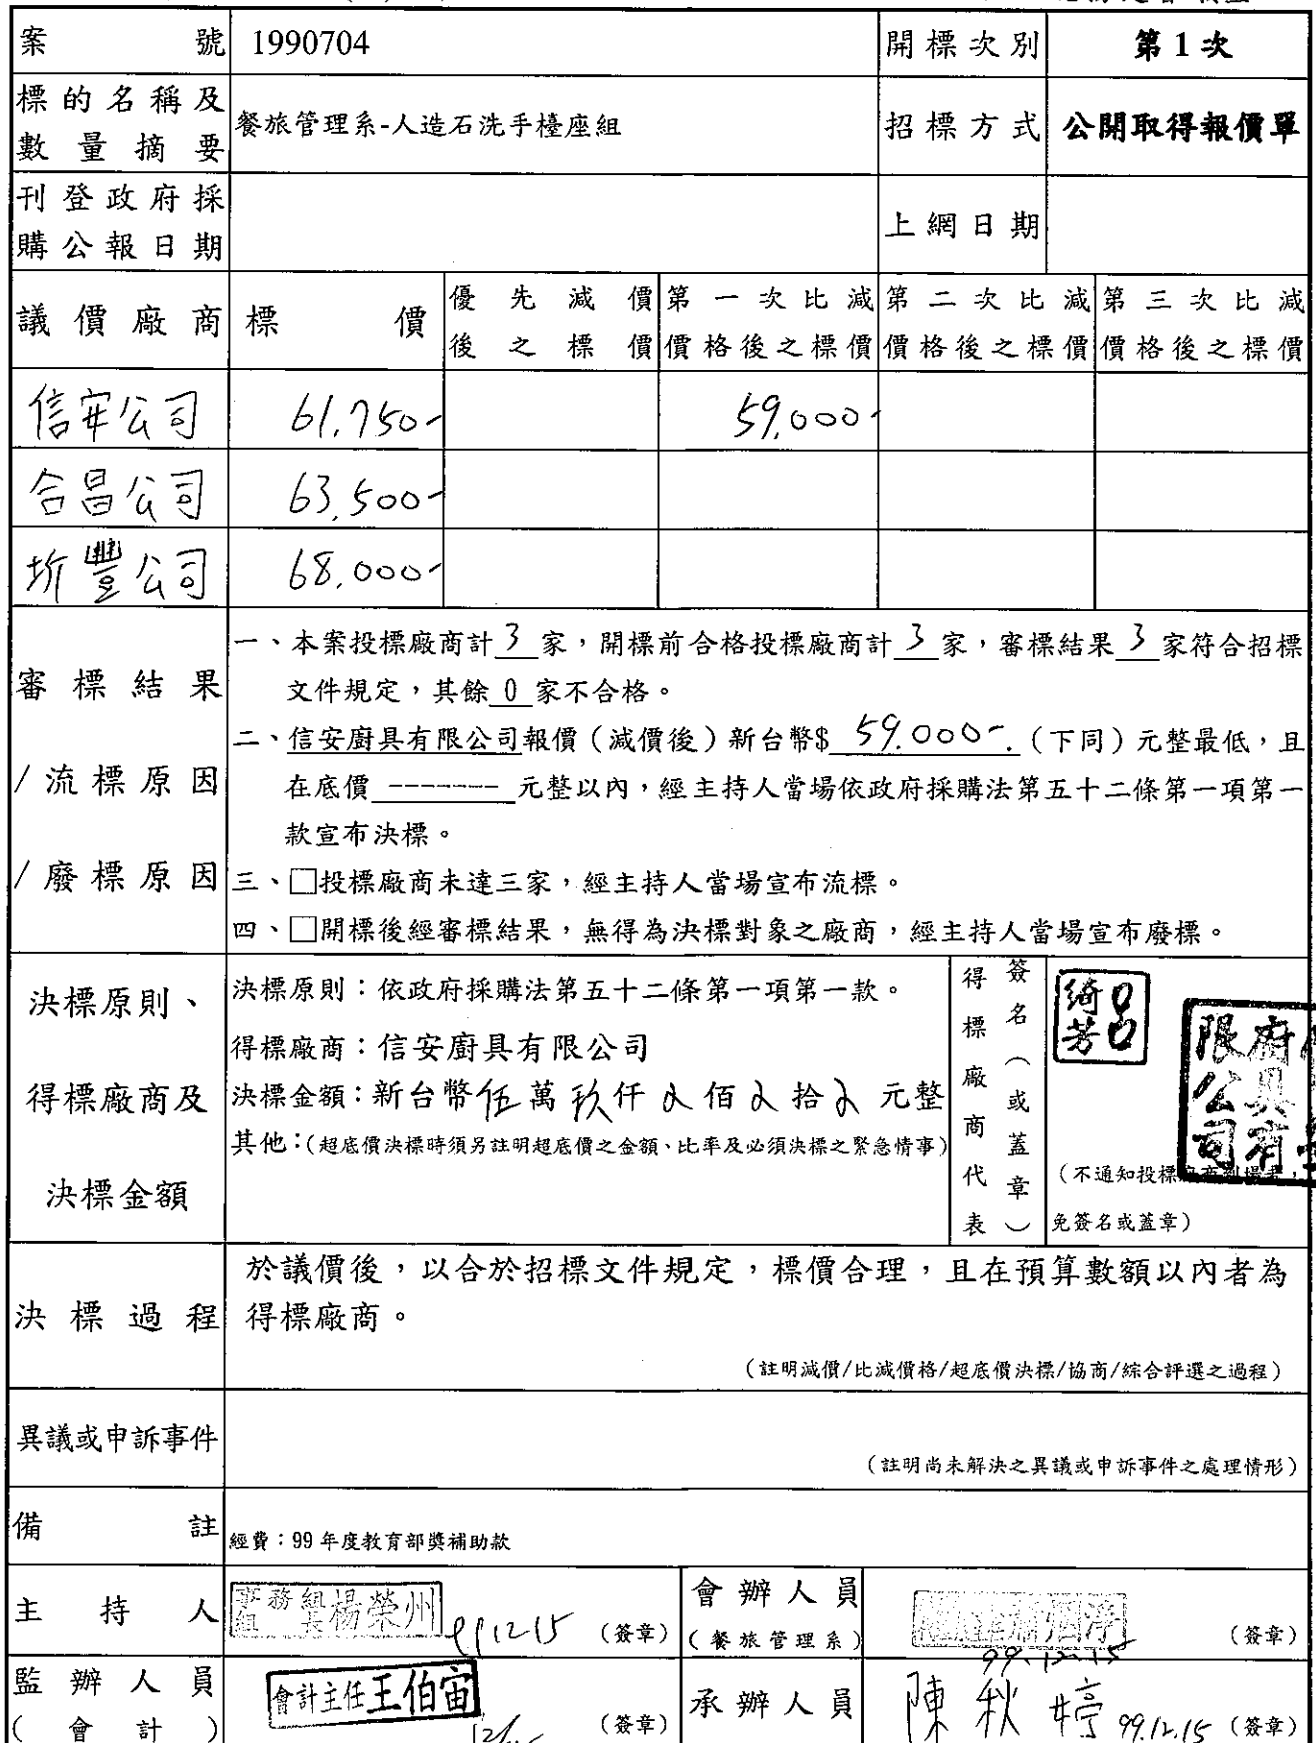 案號 1990704 開標次別 第1次
標的名稱及數量摘要 餐旅管理系-人造石洗手檯座組 招標方式 公開取得報價單
刊登政府採購公報日期 上網日期
議價廠商 標價 優先減價後之標價 第一次比減價格後之標價 第二次比減價格後之標價 第三次比減價格後之標價
信安公司 61,750- 59,000-
合昌公司 63,500-
圻豐公司 68,000-
審標結果
/流標原因
/廢標原因
一、本案投標廠商計 3 家,開標前合格投標廠商計 3 家,審標結果 3 家符合招標
文件規定,其餘 0 家不合格。
二、信安廚具有限公司報價(減價後)新台幣$ 59,000-.(下同)元整最低,且
在底價 ------- 元整以內,經主持人當場依政府採購法第五十二條第一項第一
款宣布決標。
三、□投標廠商未達三家,經主持人當場宣布流標。
四、□開標後經審標結果,無得為決標對象之廠商,經主持人當場宣布廢標。
決標原則、
得標廠商及
決標金額
決標原則:依政府採購法第五十二條第一項第一款。
得標廠商:信安廚具有限公司
決標金額:新台幣伍萬玖仟0佰0拾0元整
其他:(超底價決標時須另註明超底價之金額、比率及必須決標之緊急情事)
得標廠商代表
簽名(或蓋章)
呂綺芳
(不通知投標廠商到場者,
免簽名或蓋章)
決標過程
於議價後,以合於招標文件規定,標價合理,且在預算數額以內者為
得標廠商。
(註明減價/比減價格/超底價決標/協商/綜合評選之過程)
異議或申訴事件
(註明尚未解決之異議或申訴事件之處理情形)
備註 經費:99年度教育部獎補助款
主持人 事務組組長楊榮州 991215 (簽章) 會辦人員(餐旅管理系) 99.12.15 (簽章)
監辦人員(會計) 會計主任王伯宙 (簽章) 承辦人員 陳秋婷 99.12.15 (簽章)